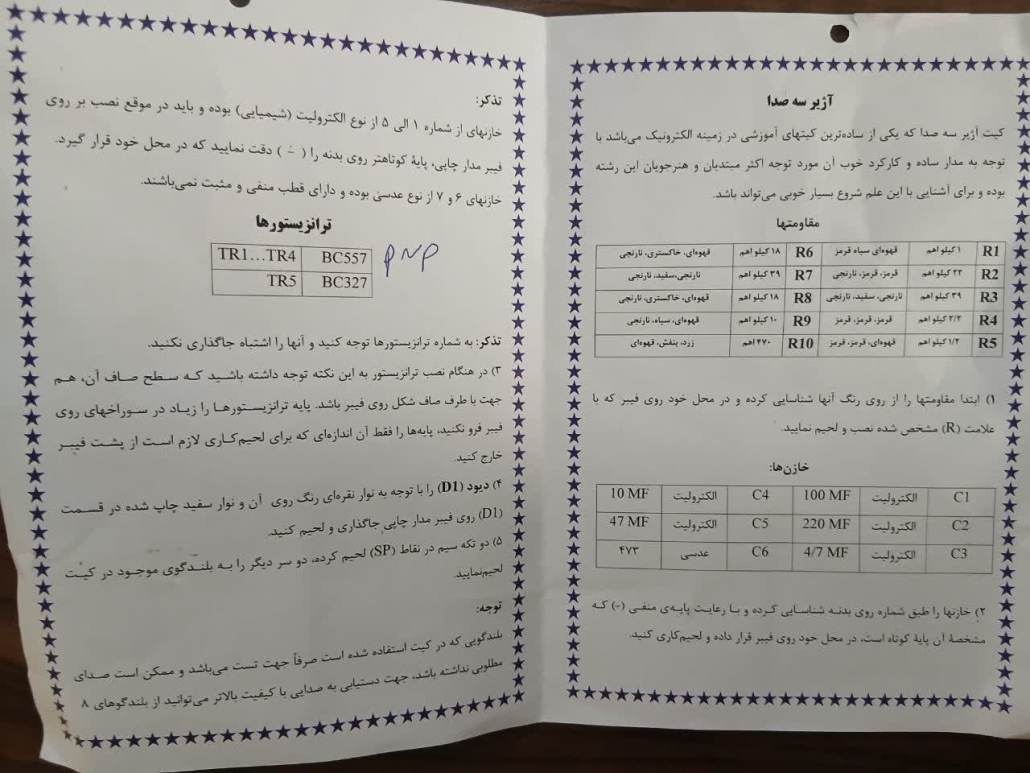 آژیر سه صدا
کیت آژیر سه صدا که یکی از ساده‌ترین کیتهای آموزشی در زمینه الکترونیک می‌باشد با
توجه به مدار ساده و کارکرد خوب آن مورد توجه اکثر مبتدیان و هنرجویان این رشته
بوده و برای آشنایی با این علم شروع بسیار خوبی می‌تواند باشد.
مقاومتها
R1 ۱ کیلو اهم قهوه‌ای سیاه قرمز R6 ۱۸ کیلو اهم قهوه‌ای، خاکستری، نارنجی
R2 ۲۲ کیلو اهم قرمز، قرمز، نارنجی R7 ۳۹ کیلو اهم نارنجی،سفید، نارنجی
R3 ۳۹ کیلو اهم نارنجی، سفید، نارنجی R8 ۱۸ کیلو اهم قهوه‌ای، خاکستری، نارنجی
R4 ۲/۲ کیلو اهم قرمز، قرمز، قرمز R9 ۱۰ کیلو اهم قهوه‌ای، سیاه، نارنجی
R5 ۱/۲ کیلو اهم قهوه‌ای، قرمز، قرمز R10 ۴۷۰ اهم زرد، بنفش، قهوه‌ای
۱) ابتدا مقاومتها را از روی رنگ آنها شناسایی کرده و در محل خود روی فیبر که با
علامت (R) مشخص شده نصب و لحیم نمایید.
خازن‌ها:
C1 الکترولیت 100 MF C4 الکترولیت 10 MF
C2 الکترولیت 220 MF C5 الکترولیت 47 MF
C3 الکترولیت 4/7 MF C6 عدسی ۴۷۳
۲) خازنها را طبق شماره روی بدنه شناسایی کرده و بـا رعایت پایه‌ی منفـی (-) کـه
مشخصۀ آن پایۀ کوتاه است، در محل خود روی فیبر قرار داده و لحیم‌کاری کنید.
تذکر:
خازنهای از شماره ۱ الی ۵ از نوع الکترولیت (شیمیایی) بوده و باید در موقع نصب بر روی
فیبر مدار چاپی، پایۀ کوتاهتر روی بدنه را ( - ) دقت نمایید که در محل خود قرار گیرد.
خازنهای ۶ و ۷ از نوع عدسی بوده و دارای قطب منفی و مثبت نمی‌باشند.
ترانزیستورها
TR1…TR4 BC557 PNP
TR5 BC327
تذکر: به شماره ترانزیستورها توجه کنید و آنها را اشتباه جاگذاری نکنید.
۳) در هنگام نصب ترانزیستور به این نکته توجه داشته باشید کـه سـطح صـاف آن، هـم
جهت با طرف صاف شکل روی فیبر باشد. پایه ترانزیستورهـا را زیـاد در سـوراخهای روی
فیبر فرو نکنید، پایه‌ها را فقط آن اندازه‌ای که برای لحیم‌کاری لازم است از پشت فیبـر
خارج کنید.
۴) دیود (D1) را با توجه به نوار نقره‌ای رنگ روی آن و نوار سفید چاپ شده در قسـمت
(D1) روی فیبر مدار چاپی جاگذاری و لحیم کنید.
۵) دو تکه سیم در نقاط (SP) لحیم کرده، دو سر دیگر را به بلنـدگوی موجـود در کیـت
لحیم‌نمایید.
توجه:
بلندگویی که در کیت استفاده شده است صرفاً جهت تست می‌باشد و ممکن است صدای
مطلوبی نداشته باشد، جهت دستیابی به صدایی با کیفیت بالاتر می‌توانید از بلندگوهای ۸